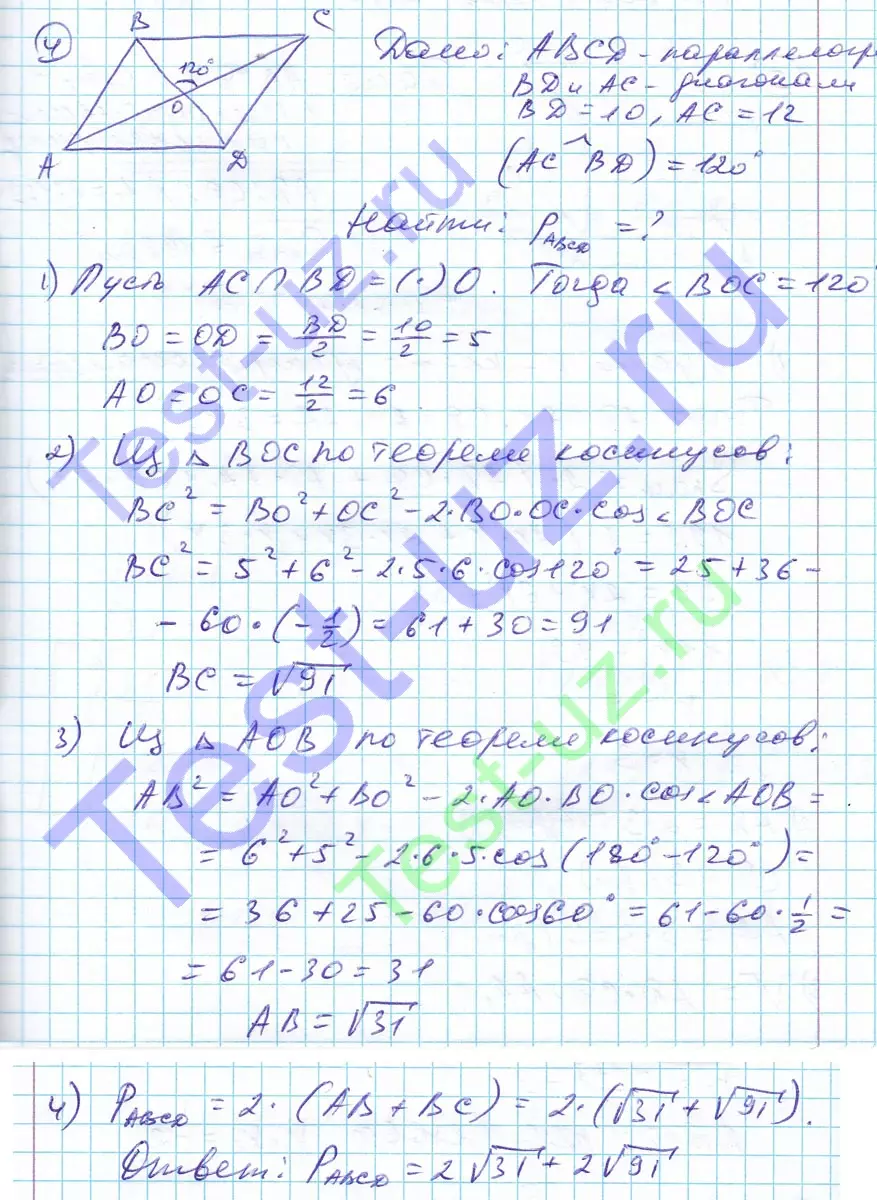 4
B
C
120°
O
A
D
Дано: ABCD - параллелогр
BD и AC - диагонали
BD = 10, AC = 12
(AC ^ BD) = 120°
Найти: P_ABCD = ?
1) Пусть AC ∩ BD = (·) O. Тогда < BOC = 120°
BO = OD = BD/2 = 10/2 = 5
AO = OC = 12/2 = 6
2) Из △ BOC по теореме косинусов:
BC² = BO² + OC² - 2·BO·OC·cos < BOC
BC² = 5² + 6² - 2·5·6·cos 120° = 25 + 36 -
- 60·(-1/2) = 61 + 30 = 91
BC = √91
3) Из △ AOB по теореме косинусов:
AB² = AO² + BO² - 2·AO·BO·cos < AOB =
= 6² + 5² - 2·6·5·cos (180° - 120°) =
= 36 + 25 - 60·cos 60° = 61 - 60·1/2 =
= 61 - 30 = 31
AB = √31
4) P_ABCD = 2·(AB + BC) = 2·(√31 + √91).
Ответ: P_ABCD = 2√31 + 2√91
Test-uz.ru
Test-uz.ru
Test-uz.ru